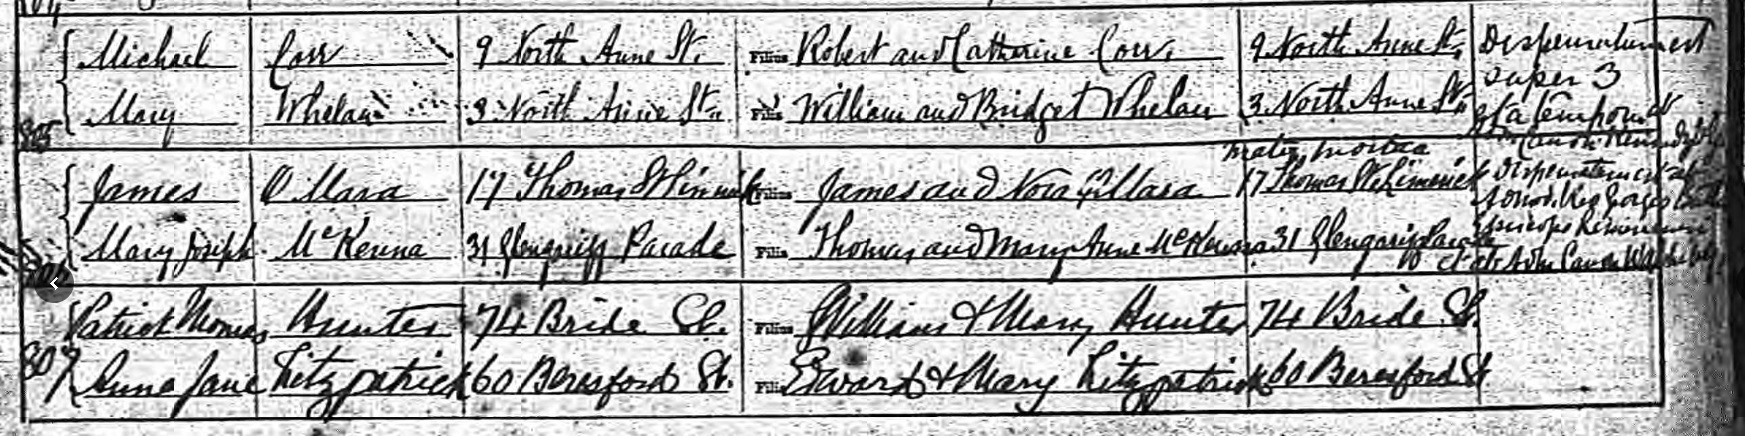 Michael Corr 9 North Anne St. Filius Robert and Catherine Corr. 9 North Anne St. Dispensatum est
super 3
Mary Whelan 3 North Anne St. Filia William and Bridget Whelan 3 North Anne St.
805
mater mortua
James O'Mara 17 Thomas St Limerick Filius James and Nora O'Mara 17 Thomas St Limerick Dispensatum est
Mary Joseph McKenna 31 Glengariff Parade Filia Thomas and Mary Anne McKenna 31 Glengariff Parade
Canon
Patrick Thomas Hunter 74 Bride St. Filius William & Mary Hunter 74 Bride St.
807 Anna Jane Fitzpatrick 60 Beresford St. Filia Edward & Mary Fitzpatrick 60 Beresford St